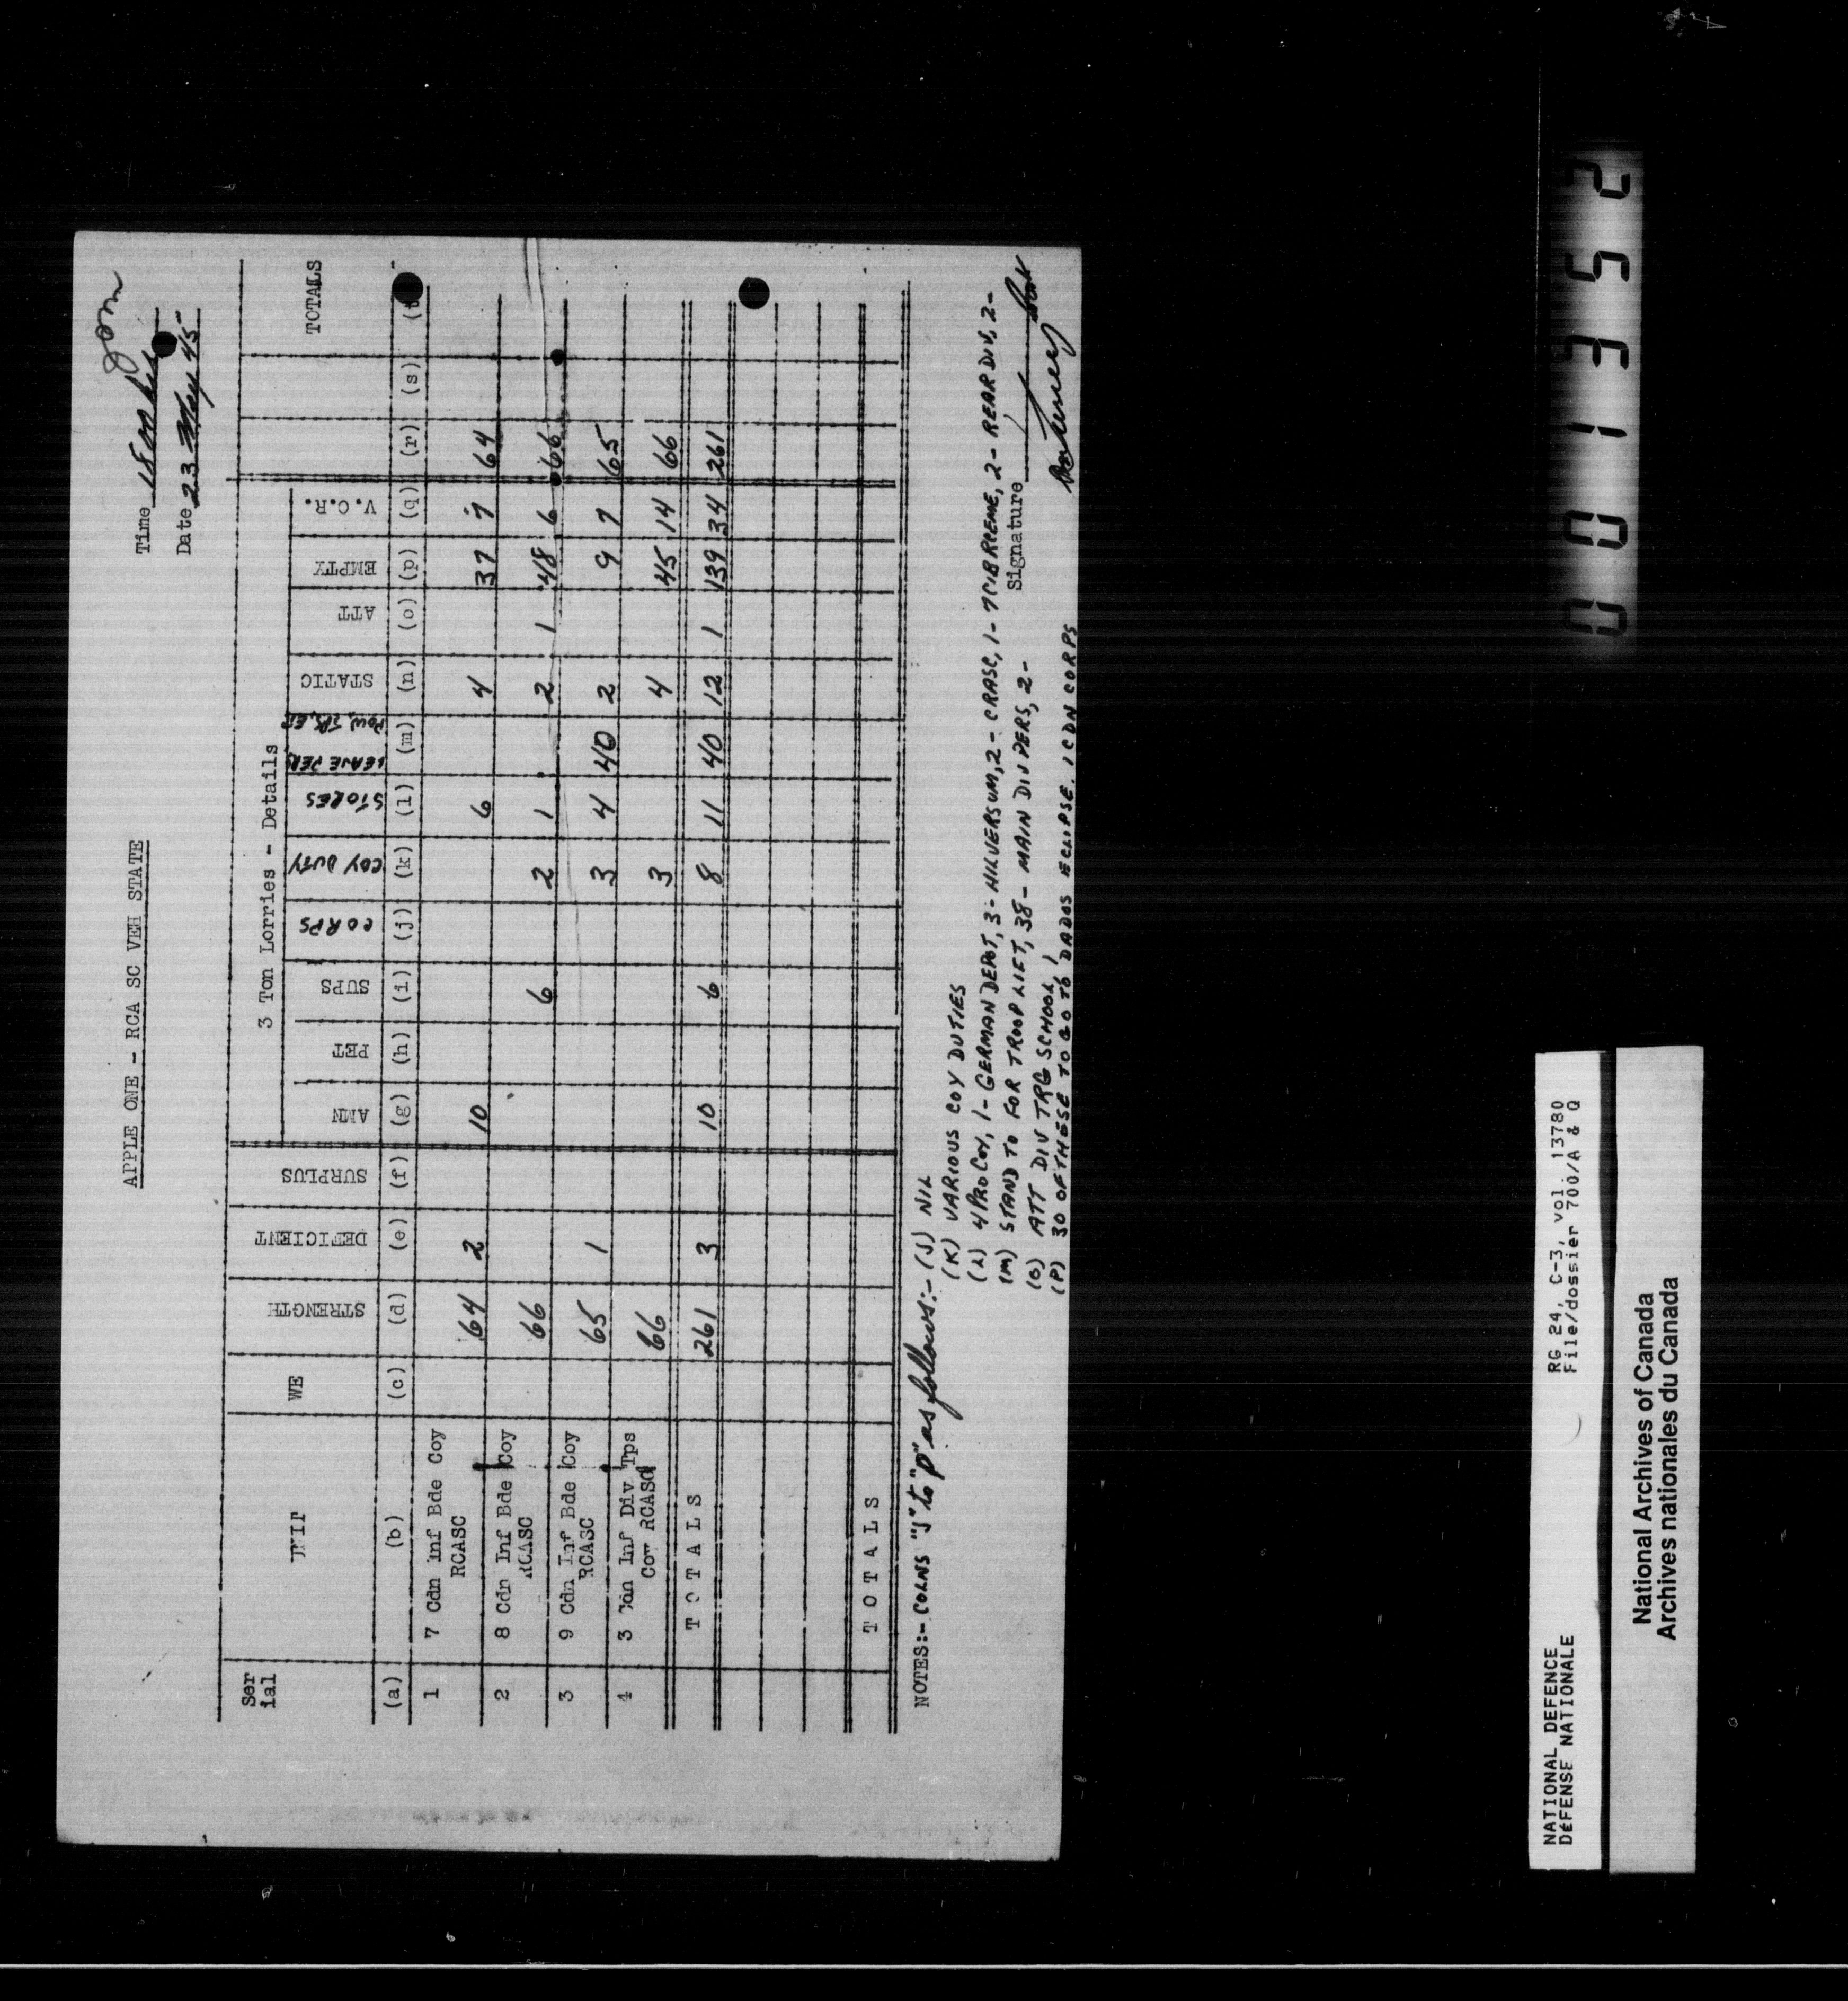 APPLE ONE - RCA SC VEH STATE
Time 1800 hrs
Date 23 May 45
Ser ial
UNIT
WE
STRENGTH
DEFICIENT
SURPLUS
3 Ton Lorries - Details
AMN
PET
SUPS
CORPS
COY DUTY
STORES
LEAVE PER, POW, TPS, ER
STATIC
ATT
EMPTY
V.O.R.
TOTALS
(a) (b) (c) (d) (e) (f) (g) (h) (i) (j) (k) (l) (m) (n) (o) (p) (q) (r) (s) (t
1 7 Cdn Inf Bde Coy RCASC 64 2 10 6 4 37 7 64
2 8 Cdn Inf Bde Coy RCASC 66 6 2 1 2 1 48 6 66
3 9 Cdn Inf Bde Coy RCASC 65 1 3 4 40 2 9 7 65
4 3 Cdn Inf Div Tps Coy RCASC 66 3 4 45 14 66
T O T A L S 261 3 10 6 8 11 40 12 1 139 34 261
T O T A L S
NOTES:- COLNS "J" to "P" as follows:- (J) NIL
(K) VARIOUS COY DUTIES
(L) 4 PRO COY, 1- GERMAN DEPOT, 3- HILVERSUM, 2- CRASC, 1- 7 CIB RCEME, 2- REAR DIV, 2-
(M) STAND TO FOR TROOP LIFT, 38- MAIN DIV PERS, 2-
(O) ATT DIV TRG SCHOOL, 1
(P) 30 OF THESE TO GO TO DADOS ECLIPSE. 1 CDN CORPS
Signature
0 0 1 3 5 2
NATIONAL DEFENCE
DÉFENSE NATIONALE
RG 24, C-3, vol. 13780
File/dossier 700/A & Q
National Archives of Canada
Archives nationales du Canada